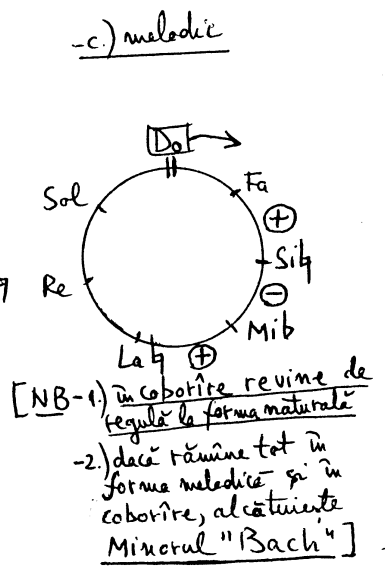 -c.) melodic
Do
Sol
Fa
+
Si♮
Re
−
Mib
La♮
+
[NB-1.) în coborîre revine de
regulă la forma naturală
-2.) dacă rămîne tot în
forma melodică și în
coborîre, alcătuiește
Minorul "Bach"]